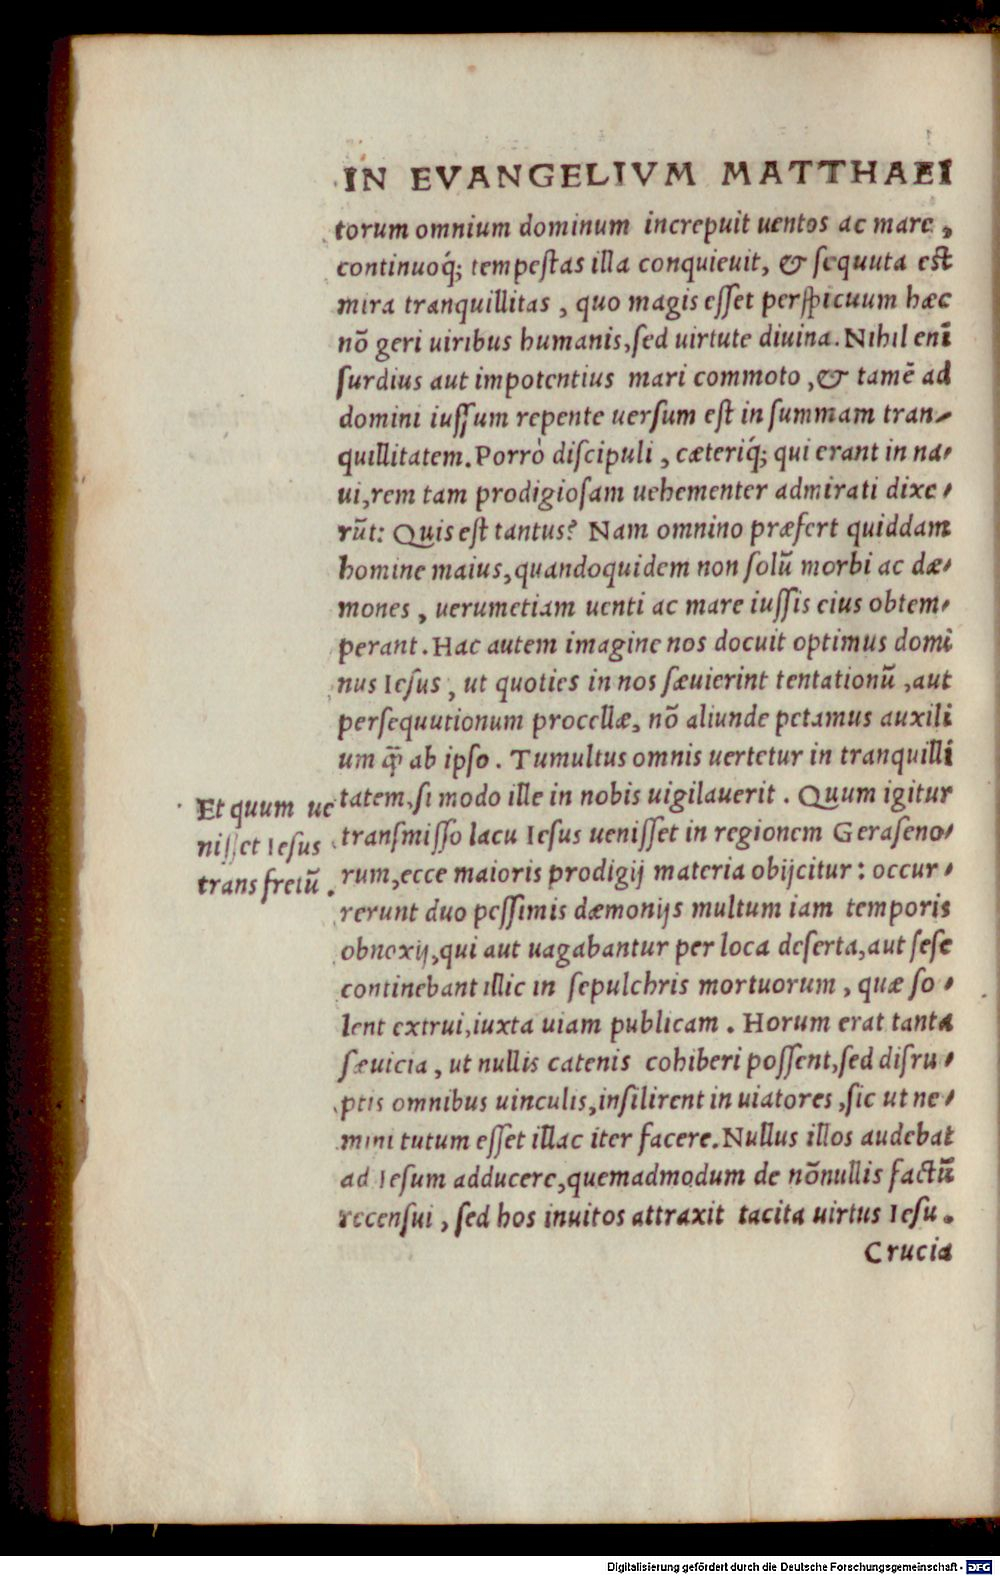 IN EVANGELIVM MATTHAEI
torum omnium dominum increpuit uentos ac mare,
continuoq́; tempeſtas illa conquieuit, & ſequuta eſt
mira tranquillitas, quo magis eſſet perſpicuum hæc
nõ geri uiribus humanis, ſed uirtute diuina. Nihil enĩ
ſurdius aut impotentius mari commoto, & tamẽ ad
domini iuſſum repente uerſum eſt in ſummam tran-
quillitatem. Porrò diſcipuli, cæteriq́; qui erant in na-
ui, rem tam prodigioſam uehementer admirati dixe-
rũt: Quis eſt tantus? Nam omnino præfert quiddam
homine maius, quandoquidem non ſolũ morbi ac dæ-
mones, uerumetiam uenti ac mare iuſſis eius obtem-
perant. Hac autem imagine nos docuit optimus domi
nus Ieſus, ut quoties in nos ſæuierint tentationũ, aut
perſequutionum procellæ, nõ aliunde petamus auxili
um q̃ ab ipſo. Tumultus omnis uertetur in tranquilli
tatem, ſi modo ille in nobis uigilauerit. Quum igitur
tranſmiſſo lacu Ieſus ueniſſet in regionem Geraſeno-
rum, ecce maioris prodigij materia obijcitur: occur-
rerunt duo peſſimis dæmonijs multum iam temporis
obnoxij, qui aut uagabantur per loca deſerta, aut ſeſe
continebant illic in ſepulchris mortuorum, quæ ſo-
lent extrui, iuxta uiam publicam. Horum erat tanta
ſæuicia, ut nullis catenis cohiberi poſſent, ſed diſru-
ptis omnibus uinculis, inſilirent in uiatores, ſic ut ne-
mini tutum eſſet illac iter facere. Nullus illos audebat
ad Ieſum adducere, quemadmodum de nõnullis factũ
recenſui, ſed hos inuitos attraxit tacita uirtus Ieſu.
Crucia
Et quum ue
niſſet Ieſus
trans fretũ.
Digitalisierung gefördert durch die Deutsche Forschungsgemeinschaft - DFG